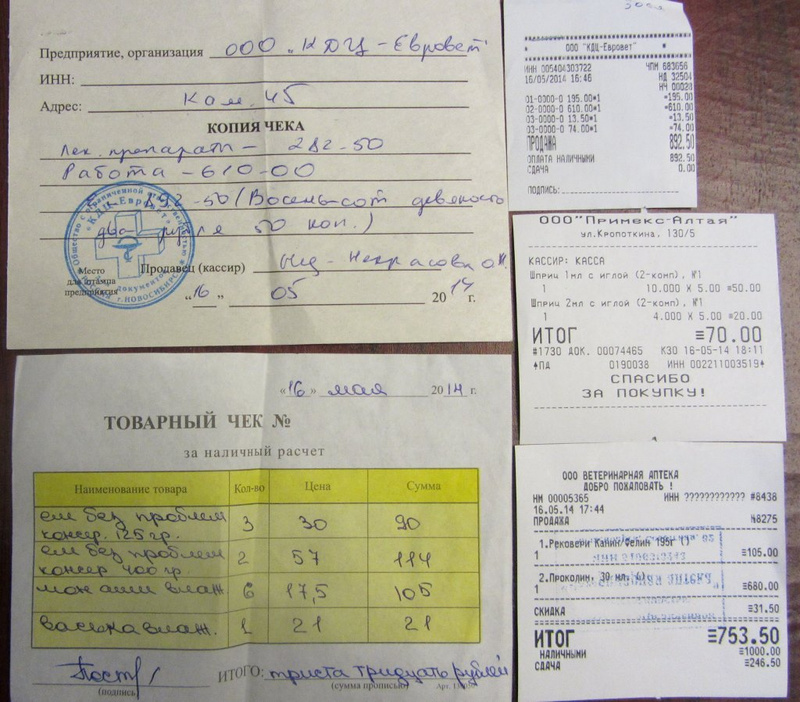 Предприятие, организация ООО "КДЦ-Евровет"
ИНН:
Адрес: Кам. 45
КОПИЯ ЧЕКА
Лек. препараты - 282-50
Работа - 610-00
892-50 (Восемьсот девяносто
два рубля 50 коп.)
Общество с ограниченной ответственностью
«КДЦ-Евровет»
г. НОВОСИБИРСК
Место
для штампа
предприятия
Продавец (кассир) Некрасова
"16" 05 2014 г.
«16» мая 2014 г.
ТОВАРНЫЙ ЧЕК №
за наличный расчет
Наименование товара Кол-во Цена Сумма
ем без проблем
консер. 125 гр. 3 30 90
ем без проблем
консер 400 гр 2 57 114
влаж. 6 17,5 105
васька влаж. 1 21 21
ИТОГО: триста тридцать рублей
(подпись) (сумма прописью)
ООО "КДЦ-Евровет"
ИНН 005404303722 ЧПН 683656
16/05/2014 16:46 НД 32504
НЧ 00028
01-0000-0 195.00*1 =195.00
02-0000-0 610.00*1 =610.00
03-0000-0 13.50*1 =13.50
03-0000-0 74.00*1 =74.00
ПРОДАЖА 892.50
ОПЛАТА НАЛИЧНЫМИ 892.50
СДАЧА 0.00
ПОДПИСЬ:
ООО"Примекс-Алтая"
ул.Кропоткина, 130/5
КАССИР: КАССА
Шприц 1мл с иглой (2-комп), №1
1 10.000 X 5.00 ≡50.00
Шприц 2мл с иглой (2-комп), №1
1 4.000 X 5.00 ≡20.00
ИТОГ ≡70.00
#1730 ДОК. 00074465 К30 16-05-14 18:11
♠ПД 0190038 ИНН 002211003519♠
СПАСИБО
ЗА ПОКУПКУ!
ООО ВЕТЕРИНАРНАЯ АПТЕКА
ДОБРО ПОЖАЛОВАТЬ !
НМ 00005365 ИНН ???????????? #8438
16.05.14 17:44
ПРОДАЖА №8275
1.Рековери Канин/Фелин 195г ()
1 ≡105.00
2.Проколин, 30 мл.
1 ≡680.00
СКИДКА ≡31.50
ИТОГ ≡753.50
НАЛИЧНЫМИ ≡1000.00
СДАЧА ≡246.50